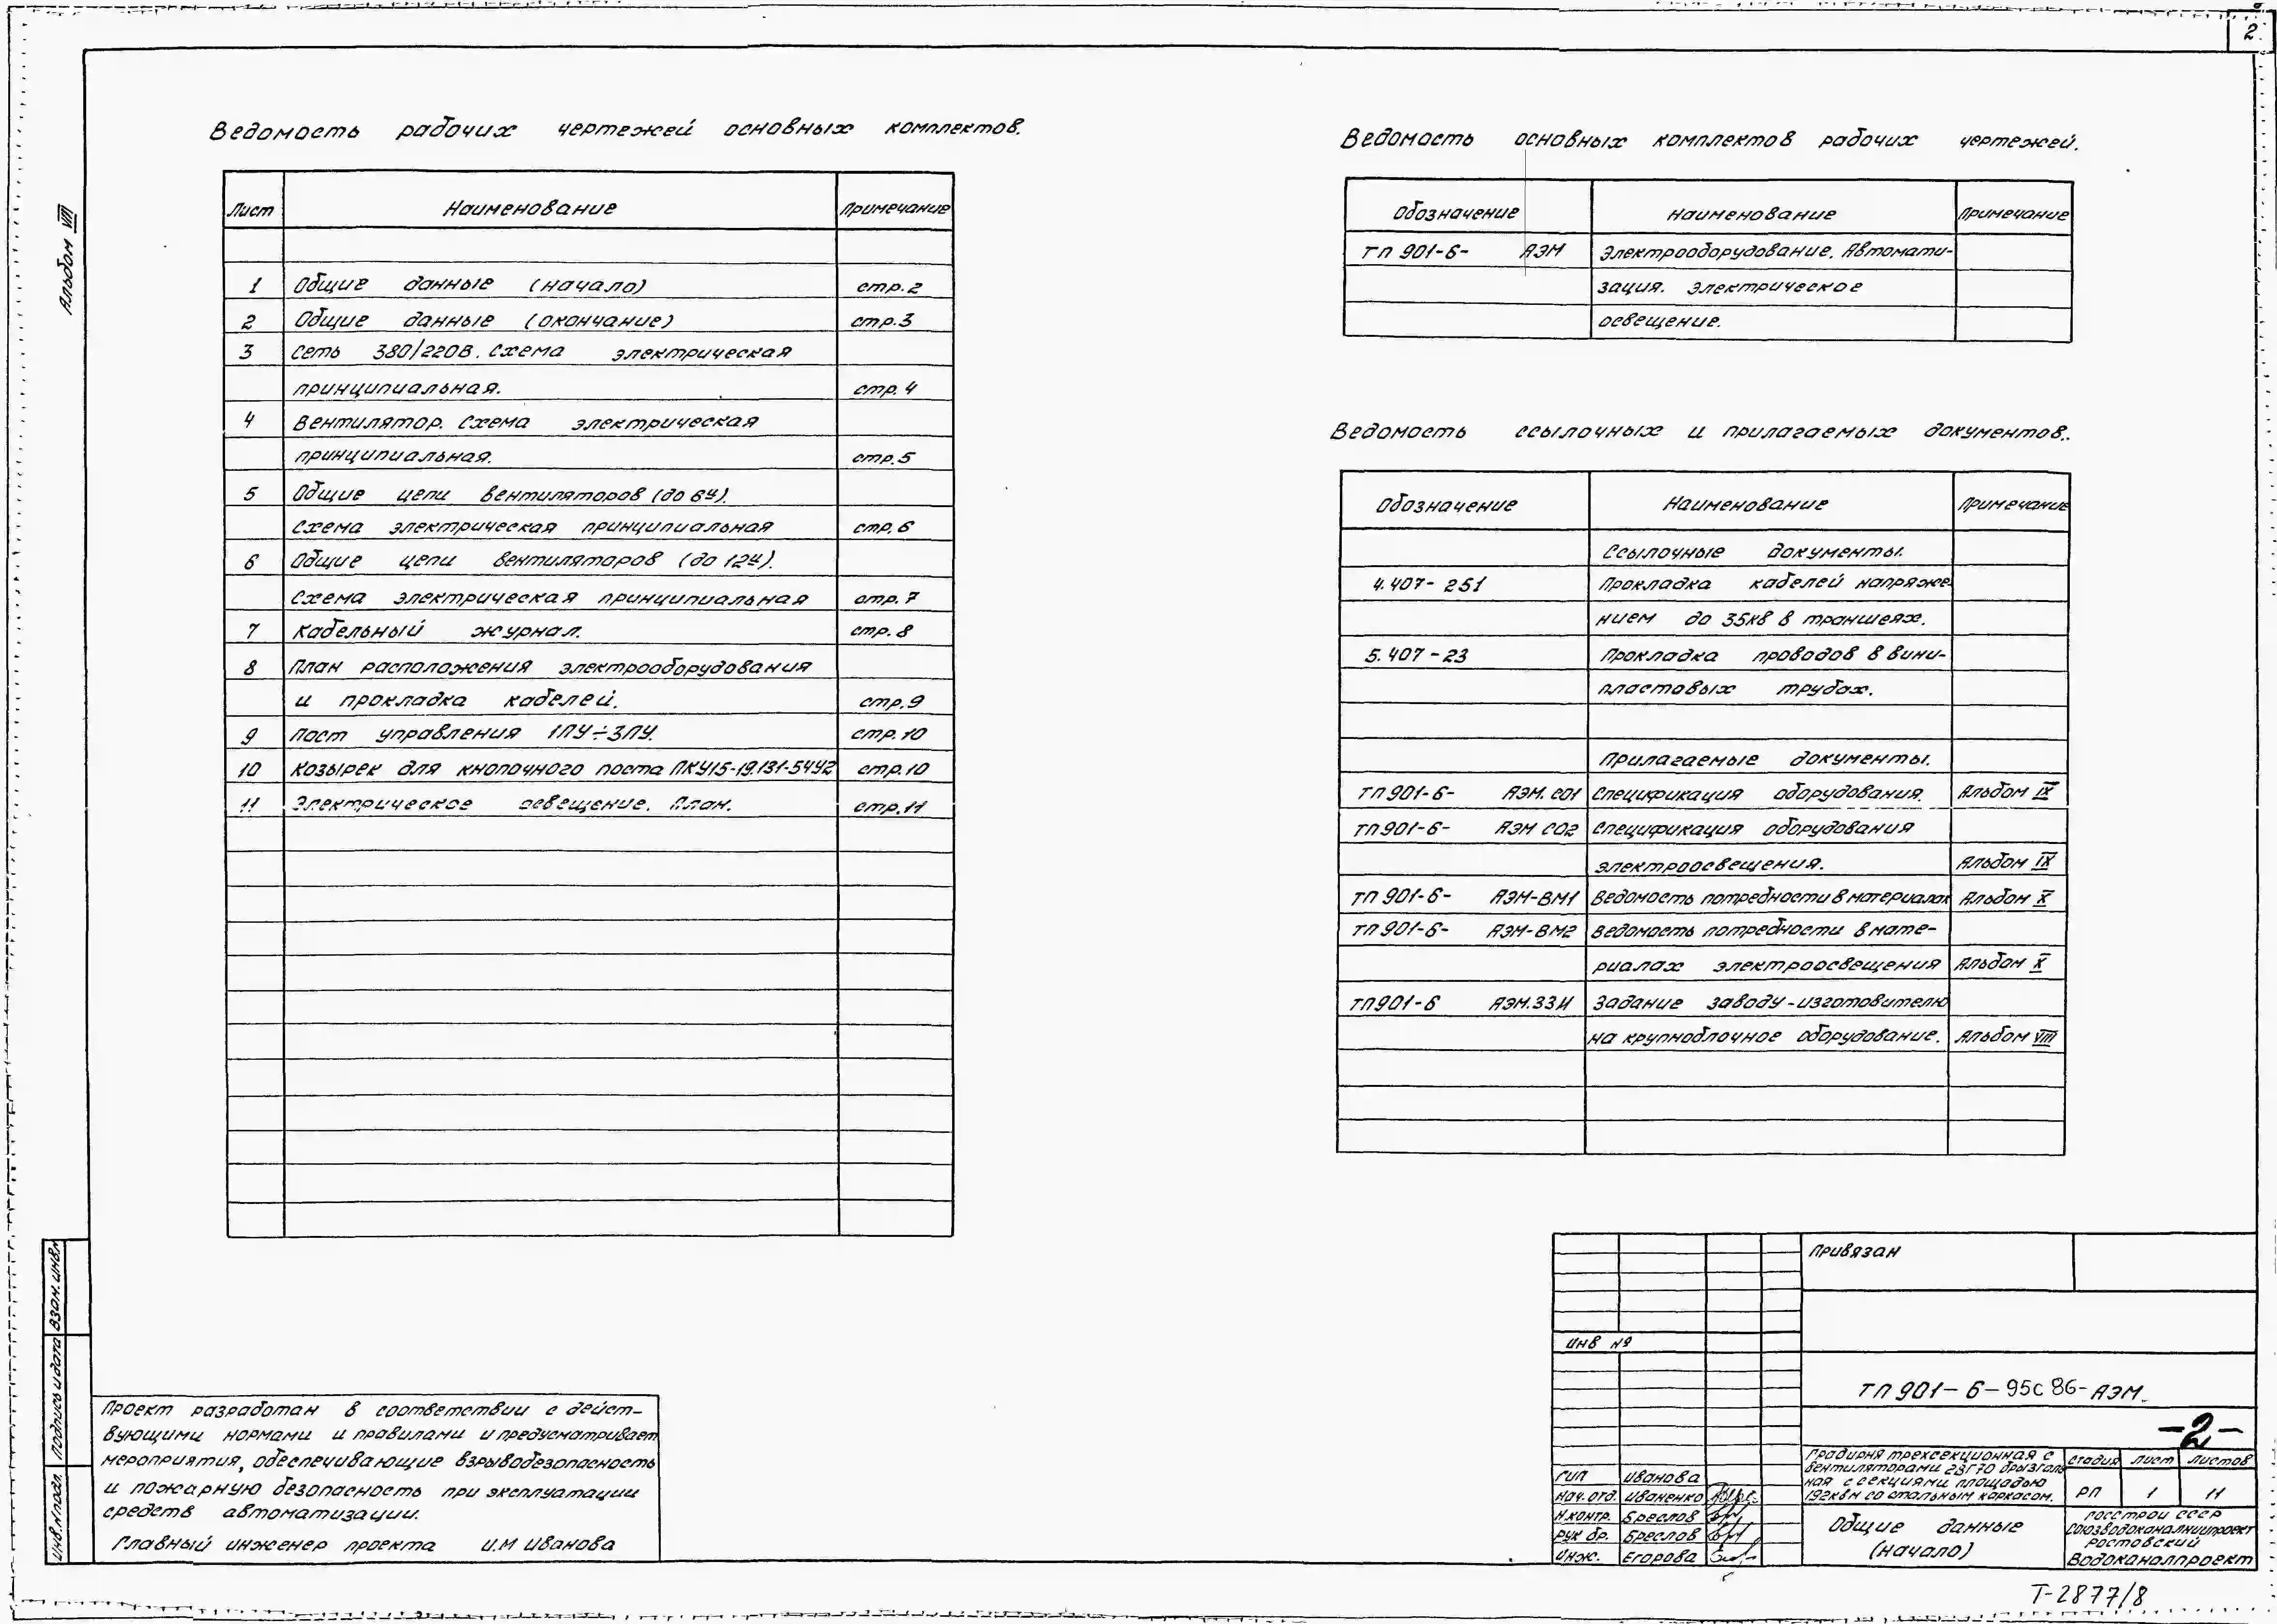 2
Альбом VIII
Ведомость рабочих чертежей основных комплектов.
Лист Наименование Примечание
1 Общие данные (начало) стр.2
2 Общие данные (окончание) стр.3
3 Сеть 380/220В. Схема электрическая
принципиальная. стр.4
4 Вентилятор. Схема электрическая
принципиальная. стр.5
5 Общие цепи вентиляторов (до 6и).
Схема электрическая принципиальная стр.6
6 Общие цепи вентиляторов (до 12и).
Схема электрическая принципиальная стр.7
7 Кабельный журнал. стр.8
8 План расположения электрооборудования
и прокладка кабелей. стр.9
9 Пост управления 1ПУ÷3ПУ. стр.10
10 Козырек для кнопочного поста ПКУ15-19.131-54У2 стр.10
11 Электрическое освещение. План. стр.11
Ведомость основных комплектов рабочих чертежей.
Обозначение Наименование Примечание
ТП 901-6- АЭМ Электрооборудование. Автомати-
зация. Электрическое
освещение.
Ведомость ссылочных и прилагаемых документов.
Обозначение Наименование Примечание
Ссылочные документы.
4.407-251 Прокладка кабелей напряже-
нием до 35кв в траншеях.
5.407-23 Прокладка проводов в вини-
пластовых трубах.
Прилагаемые документы.
ТП 901-6- АЭМ.СО1 Спецификация оборудования. Альбом IX
ТП 901-6- АЭМ СО2 Спецификация оборудования
электроосвещения. Альбом IX
ТП 901-6- АЭМ-ВМ1 Ведомость потребности в материалах Альбом X
ТП 901-6- АЭМ-ВМ2 Ведомость потребности в мате-
риалах электроосвещения Альбом X
ТП 901-6 АЭМ.ЗЗИ Задание заводу-изготовителю
на крупноблочное оборудование. Альбом VIII
Взам. инв.№
Подпись и дата
Инв.№подл.
Проект разработан в соответствии с дейст-
вующими нормами и правилами и предусматривает
мероприятия, обеспечивающие взрывобезопасность
и пожарную безопасность при эксплуатации
средств автоматизации.
Главный инженер проекта И.М Иванова
Привязан
Инв №
ТП 901-6-95с 86-АЭМ.
-2-
Градирня трехсекционная с
вентиляторами 2ВГ70 брызгаль
ная с секциями площадью
192кв м со стальным каркасом.
Стадия Лист Листов
РП 1 11
ГИП Иванова
Нач.отд. Иваненко
Н.контр. Бреслов
Рук бр. Бреслов
Инж. Егорова
Общие данные
(начало)
Госстрой СССР
Союзводоканалниипроект
Ростовский
Водоканалпроект
Т-2877/8